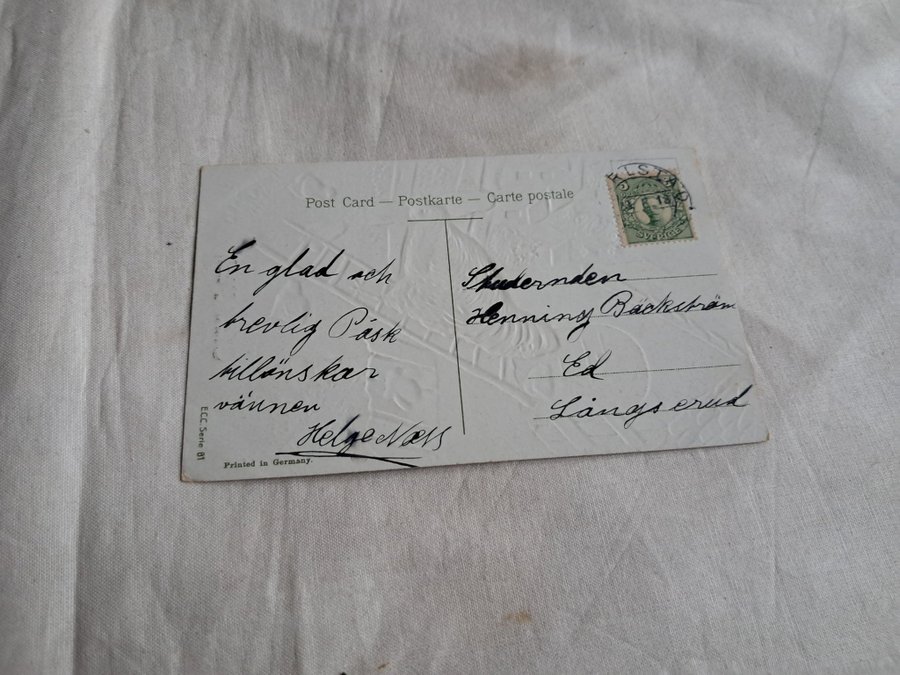 Post Card — Postkarte — Carte postale
En glad och
trevlig Påsk
tillönskar
vännen
Helge Næss
E.C.C. Serie 81
Printed in Germany.
5
SVERIGE
Studernden
Henning Bäckström
Ed
Långserud